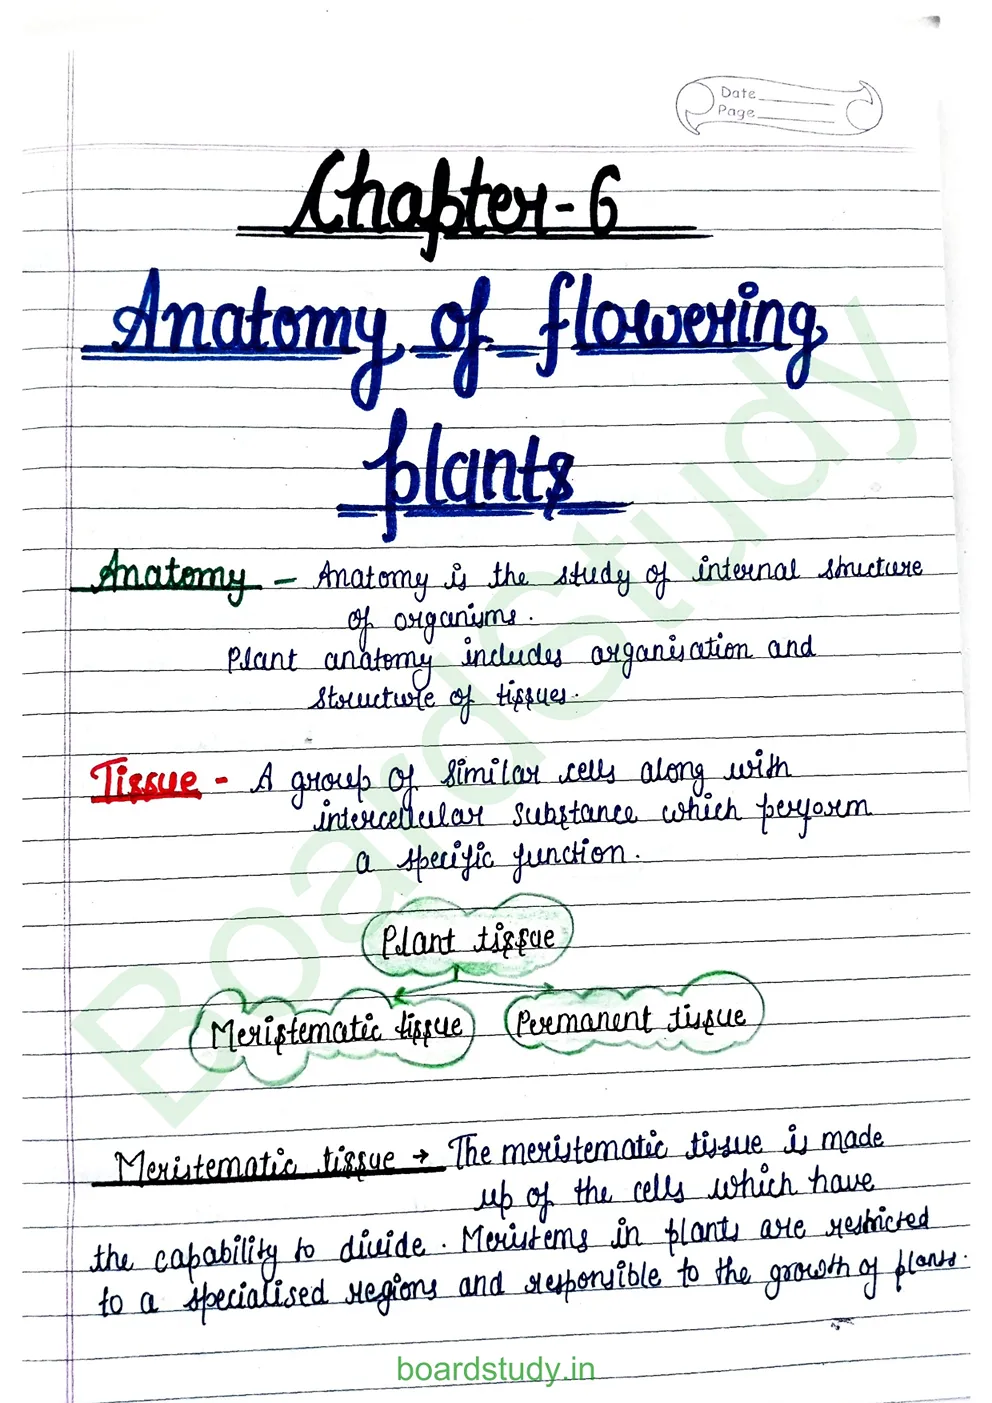 Date
Page
Chapter-6
Anatomy of flowering
plants
Anatomy - Anatomy is the study of internal structure
of organisms.
Plant anatomy includes organisation and
structure of tissues.
Tissue - A group of similar cells along with
intercellular substance which perform
a specific function.
Plant tissue
Meristematic tissue Permanent tissue
Meristematic tissue → The meristematic tissue is made
up of the cells which have
the capability to divide. Meristems in plants are restricted
to a specialised regions and responsible to the growth of plants.
boardstudy.in
BoardStudy